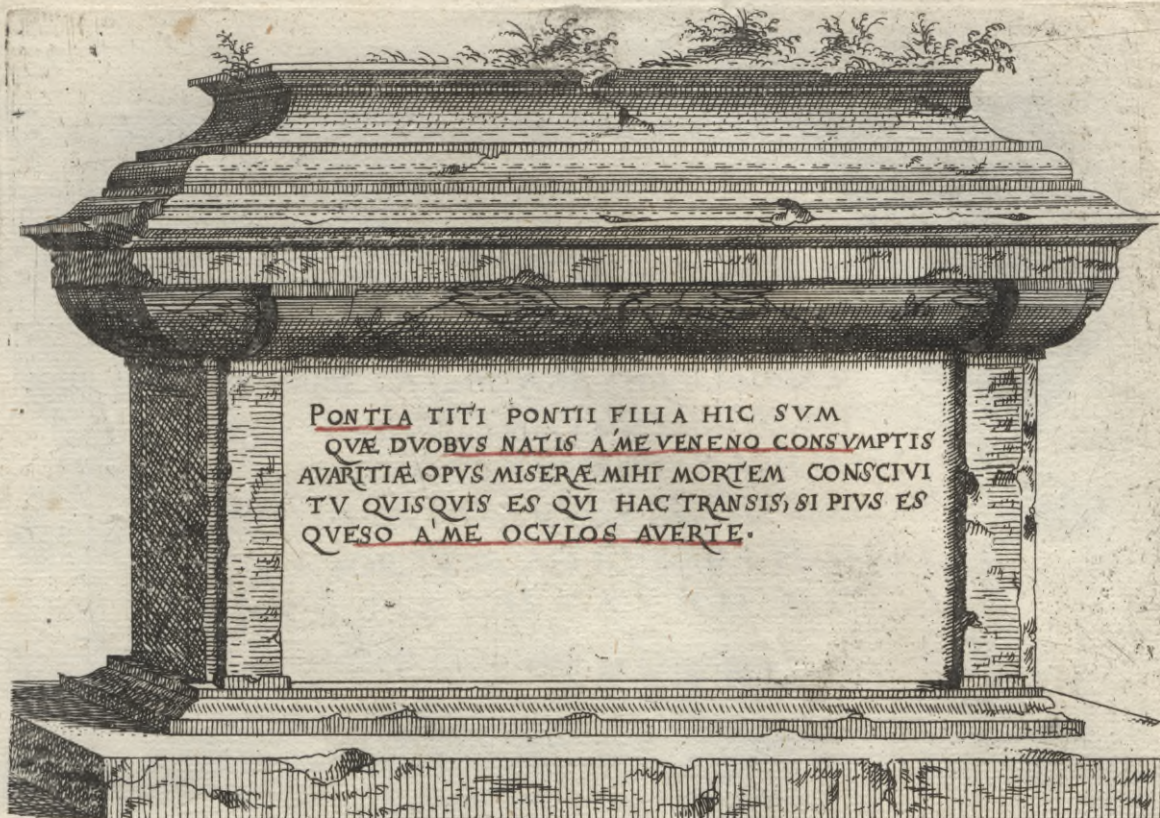 PONTIA TITI PONTII FILIA HIC SVM
QVÆ DVOBVS NATIS A'ME VENENO CONSVMPTIS
AVARITIÆ OPVS MISERÆ MIHI MORTEM CONSCIVI
TV QVISQVIS ES QVI HAC TRANSIS, SI PIVS ES
QVESO A'ME OCVLOS AVERTE.